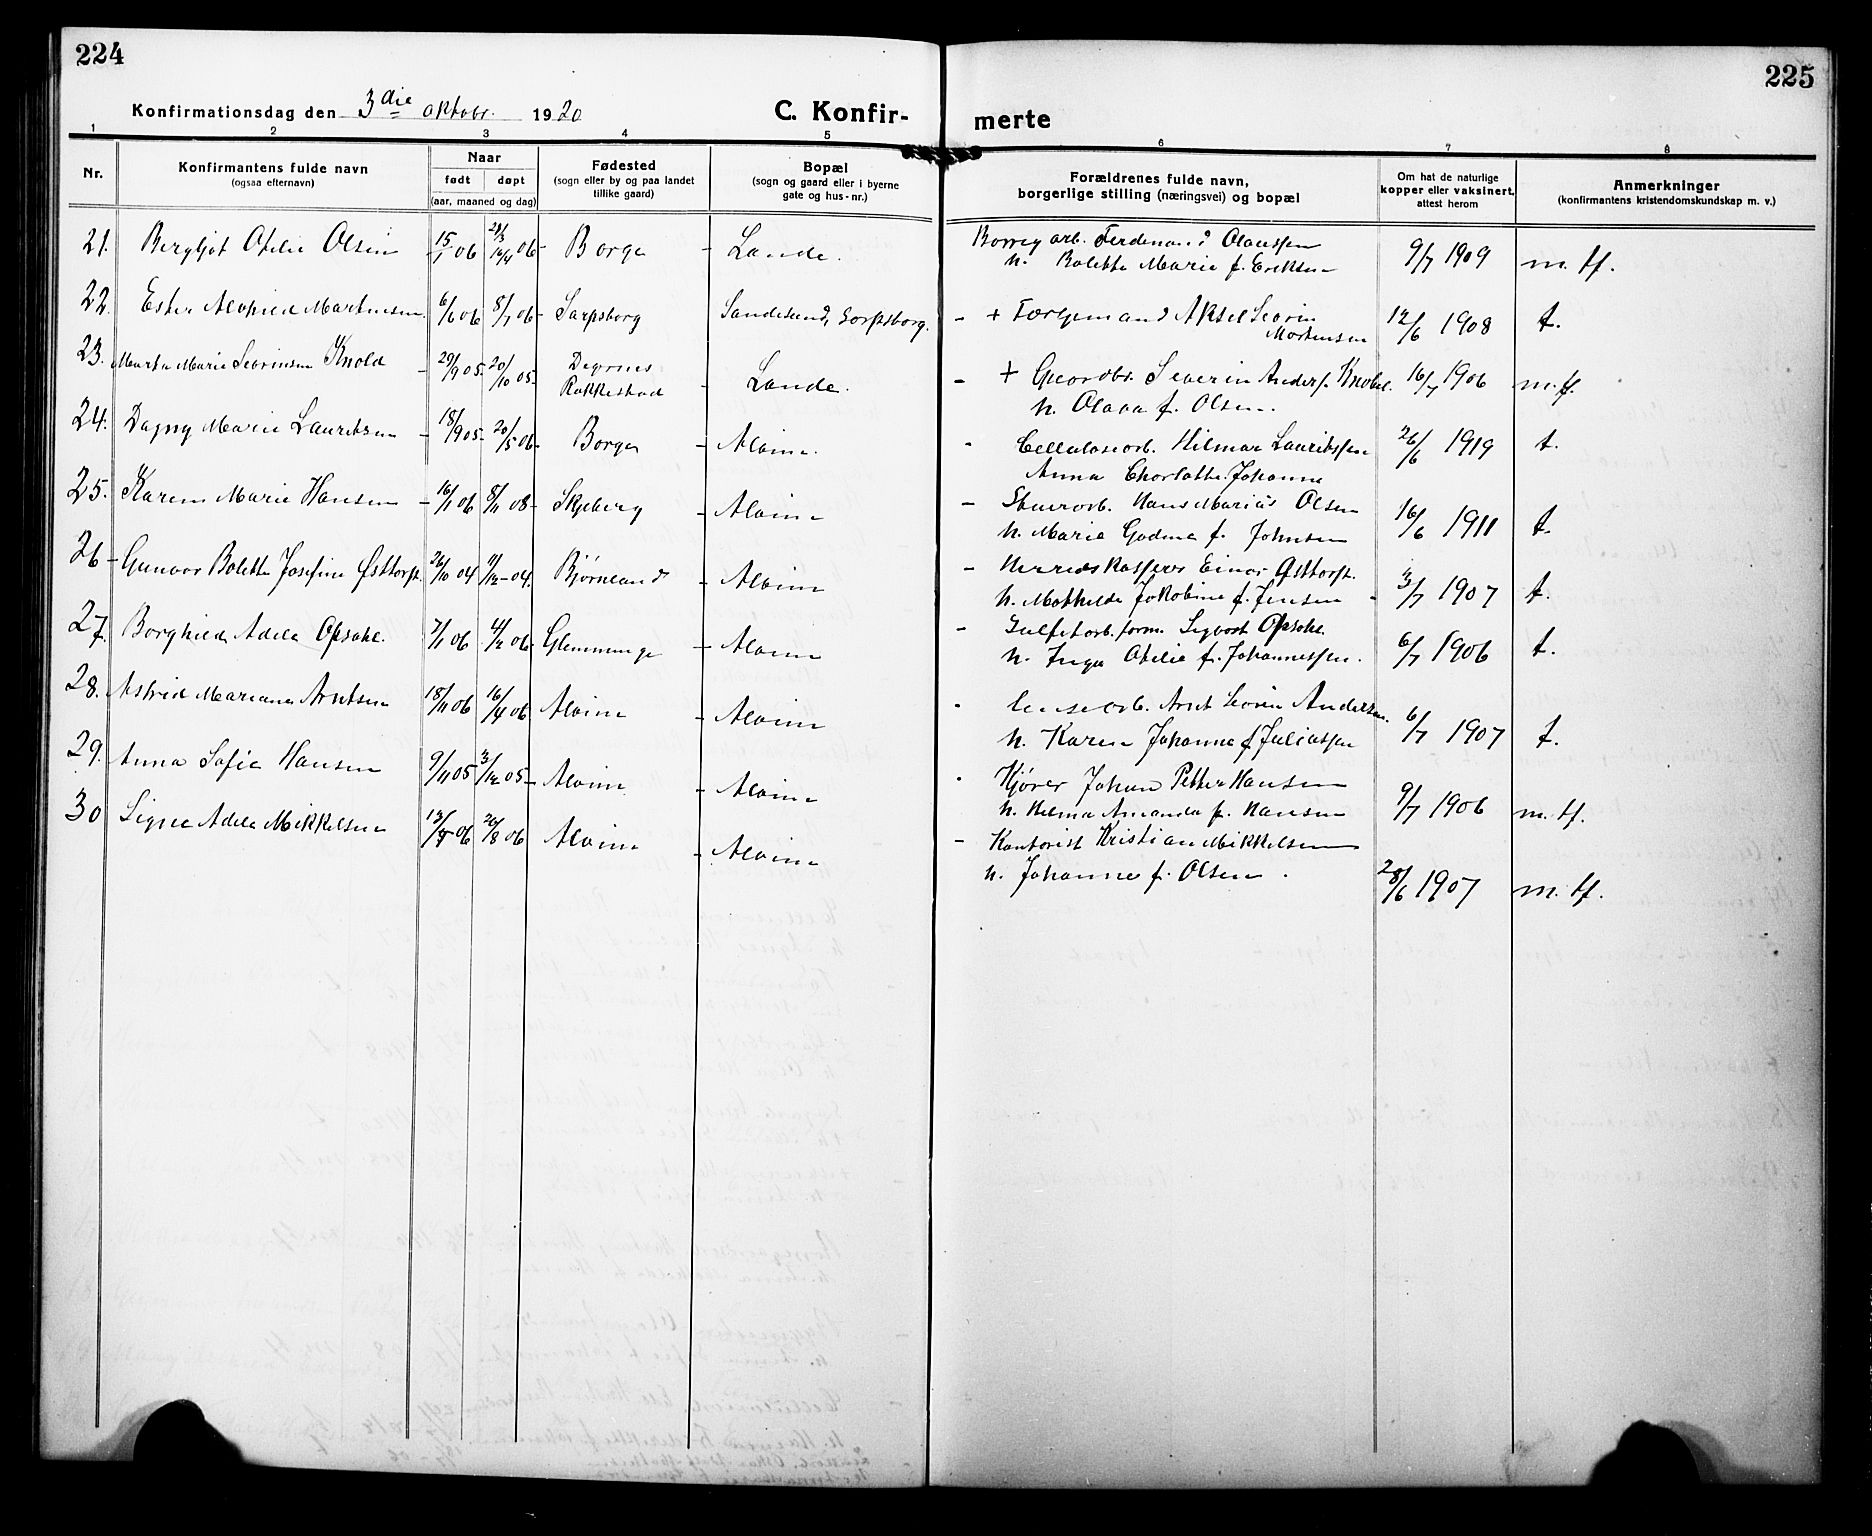 224
225
Konfirmationsdag den 3die oktobr. 1920
C. Konfir-
merte
1 2 3 4 5 6 7 8
Nr.
Konfirmantens fulde navn
(ogsaa efternavn)
Naar
født døpt
(aar, maaned og dag)
Fødested
(sogn eller by og paa landet
tillike gaard)
Bopæl
(sogn og gaard eller i byerne
gate og hus-nr.)
Forældrenes fulde navn,
borgerlige stilling (næringsvei) og bopæl
Om hat de naturlige
kopper eller vaksinert,
attest herom
Anmerkninger
(konfirmantens kristendomskundskap m. v.)
21. Bergljot Otilie Olsen 15/1 06 16/4 06 - Borge - Lande.
Borregarb. Ferdinand Olaussen
h. Bolette Marie f. Eriksen 9/7 1909 m. tf.
22. Ester Alvhild Martinsen 6/6 06 8/7 06 - Sarpsborg Sandesund, Sarpsborg.
- + Færgemand Aksel Severin
Mortensen 12/6 1908 t.
23. Marta Marie Severinsen Knold - 29/9 05 20/10 05 - Degernes
Rakkestad - Lande.
- + Gaardbr. Severin Anders. Knold. 16/7 1906 m. tf.
h. Olava f. Olsen.
24. Dagny Marie Lauritsen - 18/9 05 - 20/5 06 - Borge - Alvim.
- Cellulosearb. Hilmar Lauritssen 26/6 1919 t.
Anna Charlotte Johanne
25. Karen Marie Hansen - 16/1 06 8/11 08 - Skjeberg - Alvim
- Stuerarb. Hans Marius Olsen 16/6 1911 t.
h. Maria Gadina f. Johnsen
26 - Gunvor Bolette Josefine Østtorp. 26/10 04 11/12 - 04. Bjørneland - Alvim
- Herredskasserer Einar Østtorp.
h. Mathilde Jakobine f. Jensen - 3/7 1907 t.
27. Borghild Adele Opsahl. 7/1 06 4/2 06 - Glemminge - Alvim
- Sulfitarb. form. Sigvart Opsahl. 6/7 1906 t.
h. Inga Otilie f. Johannessen.
28. Astrid Mariane Arntsen 18/11 06 16/4 06 Alvim - Alvim
- Arnt Severin Andersen. 6/7 1907 t.
h. Karen Johanne f. Juliussen
29. Anna Sofie Hansen 9/11 05 3/12 05 - Alvim - Alvim
- Kjører Johan Petter Hansen
h. Helma Amanda f. Hansen 9/7 1906 m. tf.
30 Signe Adele Mikkelsen 06 26/8 06 Alvim - Alvim
- Kontorist Kristian Mikkelsen
h. Johanne f. Olsen. 28/6 1907 m. tf.